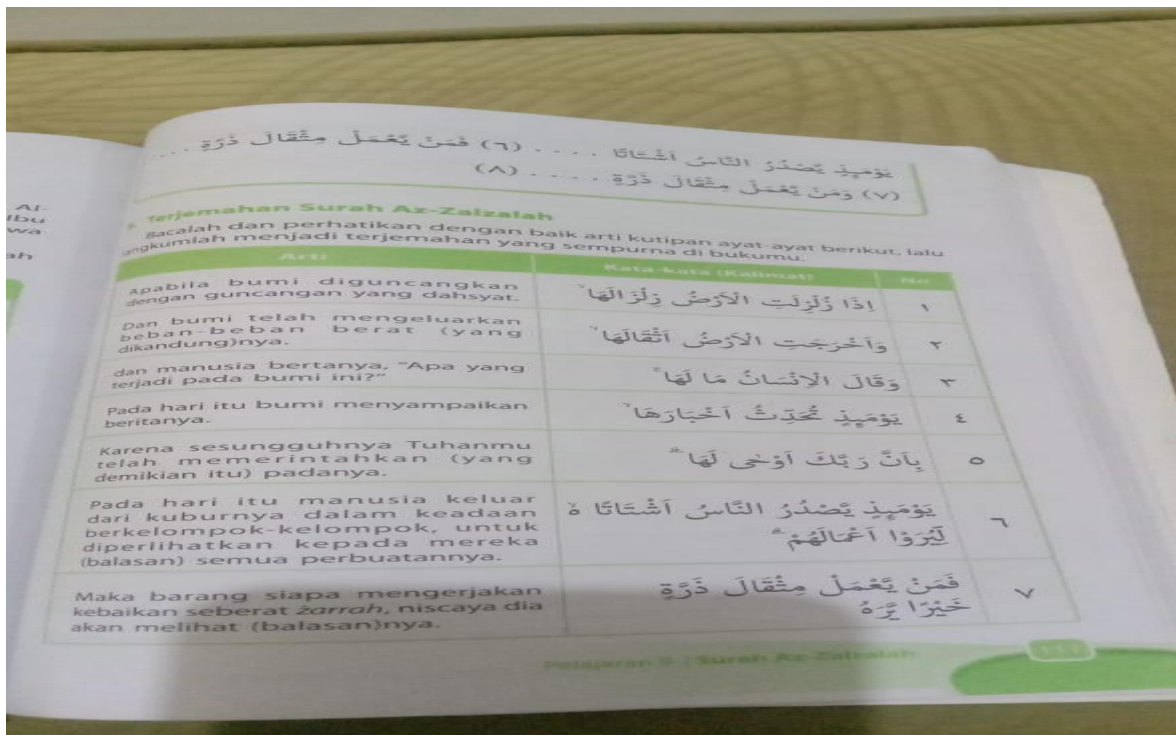 يَوْمَىِٕذٍ يَّصْدُرُ النَّاسُ اَشْتَاتًا .... (٦) فَمَنْ يَّعْمَلْ مِثْقَالَ ذَرَّةٍ ....
(٧) وَمَنْ يَّعْمَلْ مِثْقَالَ ذَرَّةٍ .... (٨)
Al-
Ibu
wa
ah
Terjemahan Surah Az-Zalzalah
Bacalah dan perhatikan dengan baik arti kutipan ayat-ayat berikut, lalu
rangkumlah menjadi terjemahan yang sempurna di bukumu.
Arti Kata-kata (Kalimat) No
Apabila bumi diguncangkan
dengan guncangan yang dahsyat.
اِذَا زُلْزِلَتِ الْاَرْضُ زِلْزَالَهَاۙ ١
Dan bumi telah mengeluarkan
beban-beban berat (yang
dikandung)nya.
وَاَخْرَجَتِ الْاَرْضُ اَثْقَالَهَاۙ ٢
dan manusia bertanya, "Apa yang
terjadi pada bumi ini?"
وَقَالَ الْاِنْسَانُ مَا لَهَاۚ ٣
Pada hari itu bumi menyampaikan
beritanya.
يَوْمَىِٕذٍ تُحَدِّثُ اَخْبَارَهَاۙ ٤
Karena sesungguhnya Tuhanmu
telah memerintahkan (yang
demikian itu) padanya.
بِاَنَّ رَبَّكَ اَوْحٰى لَهَاۗ ٥
Pada hari itu manusia keluar
dari kuburnya dalam keadaan
berkelompok-kelompok, untuk
diperlihatkan kepada mereka
(balasan) semua perbuatannya.
يَوْمَىِٕذٍ يَّصْدُرُ النَّاسُ اَشْتَاتًا ەۙ
لِّيُرَوْا اَعْمَالَهُمْۗ ٦
Maka barang siapa mengerjakan
kebaikan seberat żarrah, niscaya dia
akan melihat (balasan)nya.
فَمَنْ يَّعْمَلْ مِثْقَالَ ذَرَّةٍ
خَيْرًا يَّرَهُ ٧
Surah Az-Zalzalah